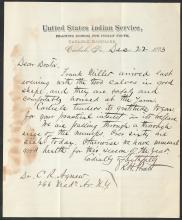 United States Indian Service,
TRAINING SCHOOL FOR INDIAN YOUTH,
CARLISLE BARRACKS,
Carlisle, Pa., Dec 22 1883
Dear Doctor,
Frank Miller arrived last
evening with the two calves in good
shape and they are safely and
comfortably housed at the Farm.
Carlisle tenders its gratitude to
you for your practical interest in its welfare
We are passing through a through
of the mumps Two sixty four
today. Otherwise we have unusual
good health for this season of the year
Cordially & faithfully
R.H. Pratt
Dr. C. R. Agnew
266 Mad. Av. N.Y